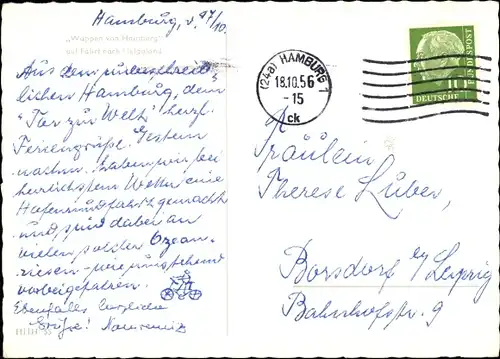 Hamburg, d. 17/10.
"Wappen von Hamburg"
auf Fahrt nach Helgoland
Aus dem unbeschreib-
lichen Hamburg, dem
"Tor zur Welt" herzl.
Feriengrüße. Gestern
nachm. haben wir bei
herrlichstem Wetter eine
Hafenrundfahrt gemacht
und sind dabei an
vielen solcher Ozean-
riesen - wie umstehend
vorbeigefahren.
Ebenfalls herzliche
Grüße!
(24a) HAMBURG 1
18.10.56
-15
ck
10
DEUTSCHE
BUNDESPOST
Fräulein
Therese Luber,
Borsdorf b/Leipzig
Bahnhofstr. 9